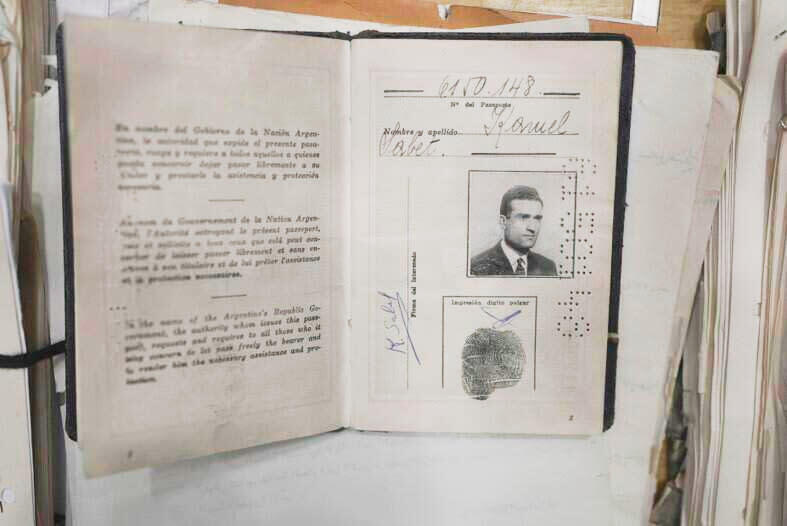 En nombre del Gobierno de la Nación Argen-
tina, la autoridad que expide el presente pasa-
porte, ruega y requiere a todos aquellos a quienes
pueda concernir dejar pasar libremente a su
titular y prestarle la asistencia y protección
necesaria.
Au nom du Gouvernement de la Nation Argen-
tine, l'Autorité octroyant le présent passeport,
prie et sollicite a tous ceux que celá peut con-
cerner de laisser passer librement et sans en-
traves à son titulaire et de lui prêter l'assistance
et la protection nécessaires.
In the name of the Argentine's Republic Go-
vernment, the authority whom issues this pass-
port, requests and requires to all those who it
may concern to let pass freely the bearer and
to render him the necessary assistance and pro-
tection.
6150.148
Nº del Pasaporte
Nombre y apellido Kamel
Sabet.
Firma del interesado
K. Sabet
Impresión dígito pulgar
2